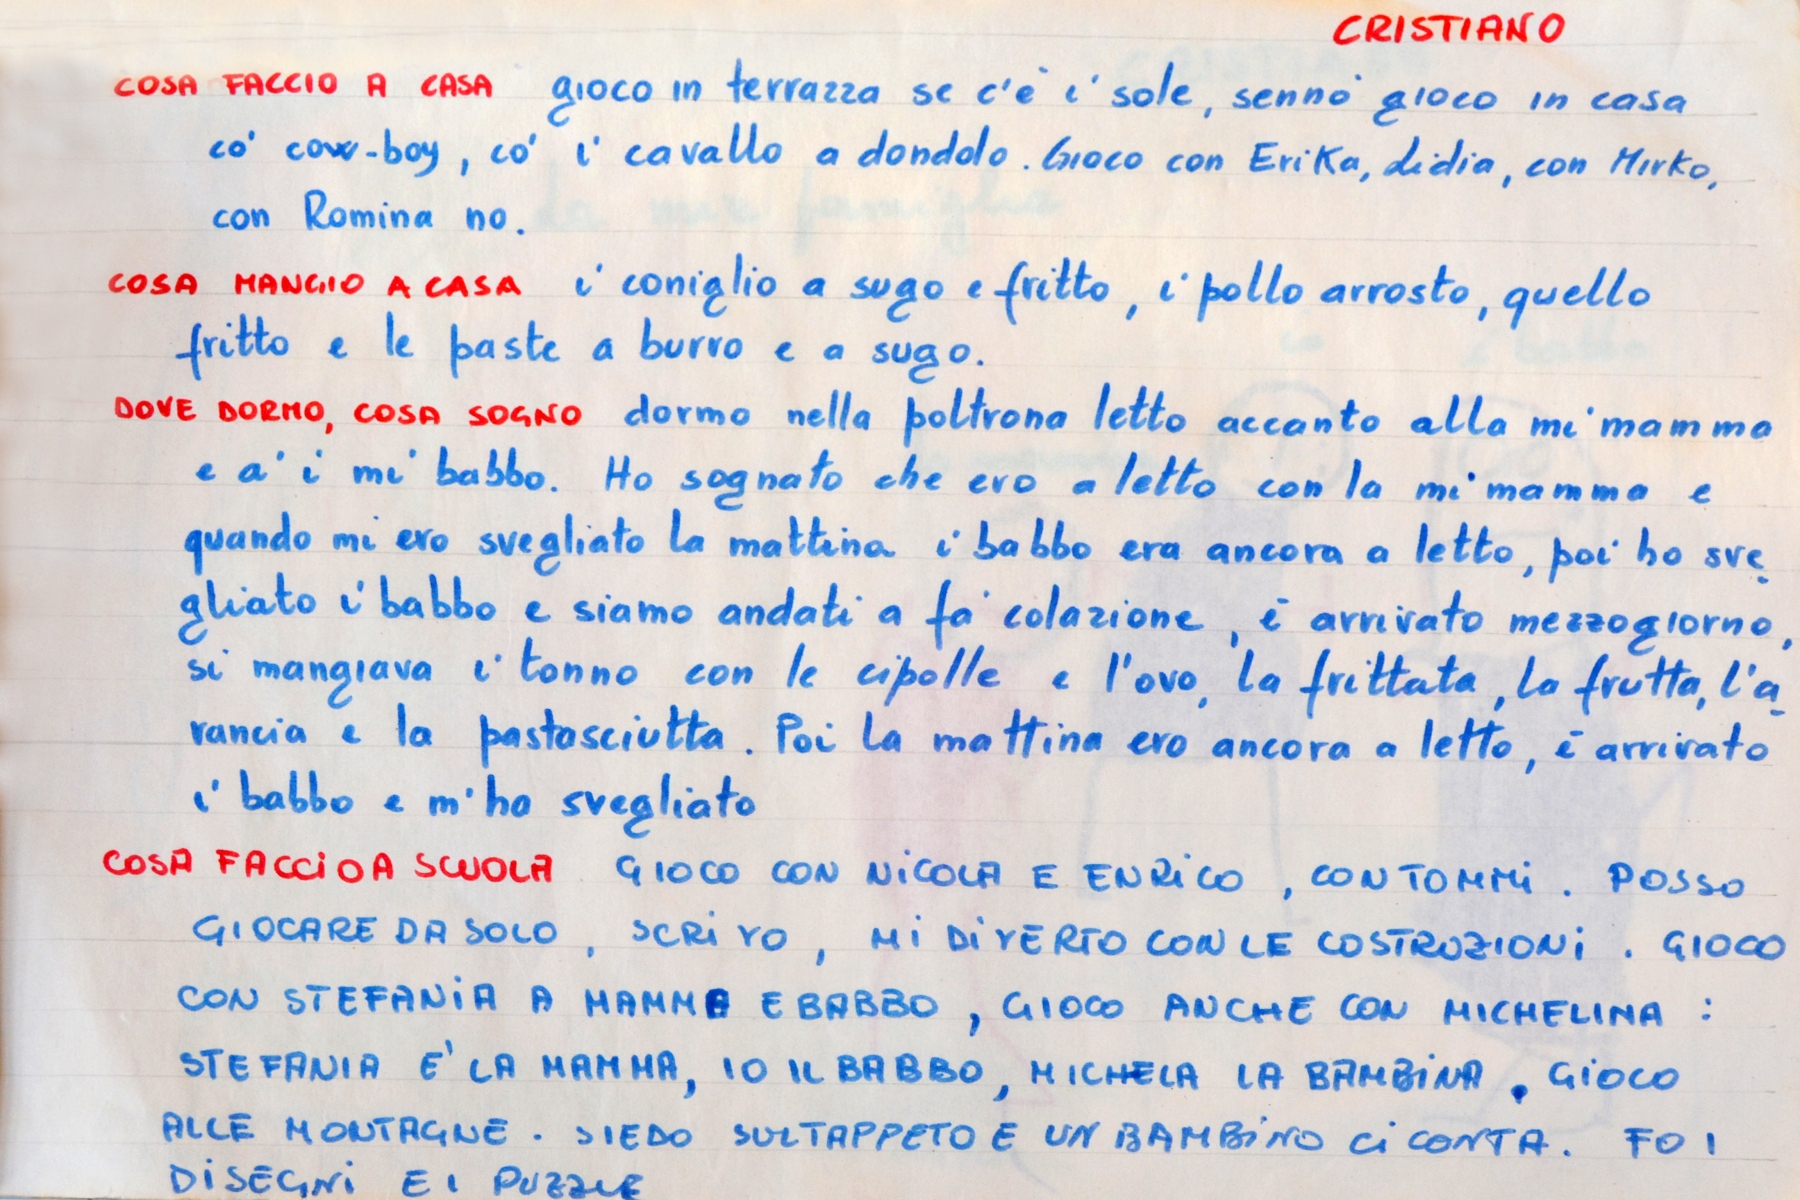 CRISTIANO
COSA FACCIO A CASA gioco in terrazza se c'è i' sole, sennò gioco in casa
co' cow-boy, co' i' cavallo a dondolo. Gioco con Erika, Lidia, con Mirko,
con Romina no.
COSA MANGIO A CASA i' coniglio a sugo e fritto, i' pollo arrosto, quello
fritto e le paste a burro e a sugo.
DOVE DORMO, COSA SOGNO dormo nella poltrona letto accanto alla mi' mamma
e a' i mi' babbo. Ho sognato che ero a letto con la mi' mamma e
quando mi ero svegliato la mattina i' babbo era ancora a letto, poi ho sve
gliato i' babbo e siamo andati a fa' colazione, è arrivato mezzogiorno,
si mangiava i' tonno con le cipolle e l'ovo, la frittata, la frutta, l'a
rancia e la pastasciutta. Poi la mattina ero ancora a letto, è arrivato
i' babbo e m'ha svegliato
COSA FACCIO A SCUOLA GIOCO CON NICOLA E ENRICO, CON TOMMI. POSSO
GIOCARE DA SOLO, SCRIVO, MI DIVERTO CON LE COSTRUZIONI. GIOCO
CON STEFANIA A MAMMA E BABBO, GIOCO ANCHE CON MICHELINA:
STEFANIA E' LA MAMMA, IO IL BABBO, MICHELA LA BAMBINA, GIOCO
ALLE MONTAGNE. SIEDO SUL TAPPETO E UN BAMBINO CI CONTA. FO I
DISEGNI E I PUZZLE